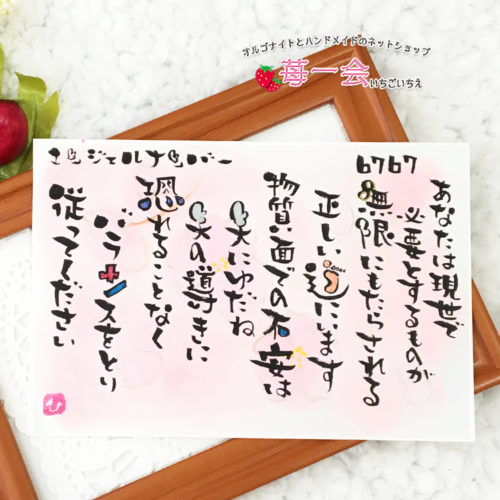 オルゴナイトとハンドメイドのネットショップ
苺一会
いちごいちえ
エンジェルナンバー
6767
あなたは現世で
必要とするものが
無限にもたらされる
正しい道にいます
物質面での不安は
天にゆだね
天の導きに
恐れることなく
バランスをとり
従ってください
ひ